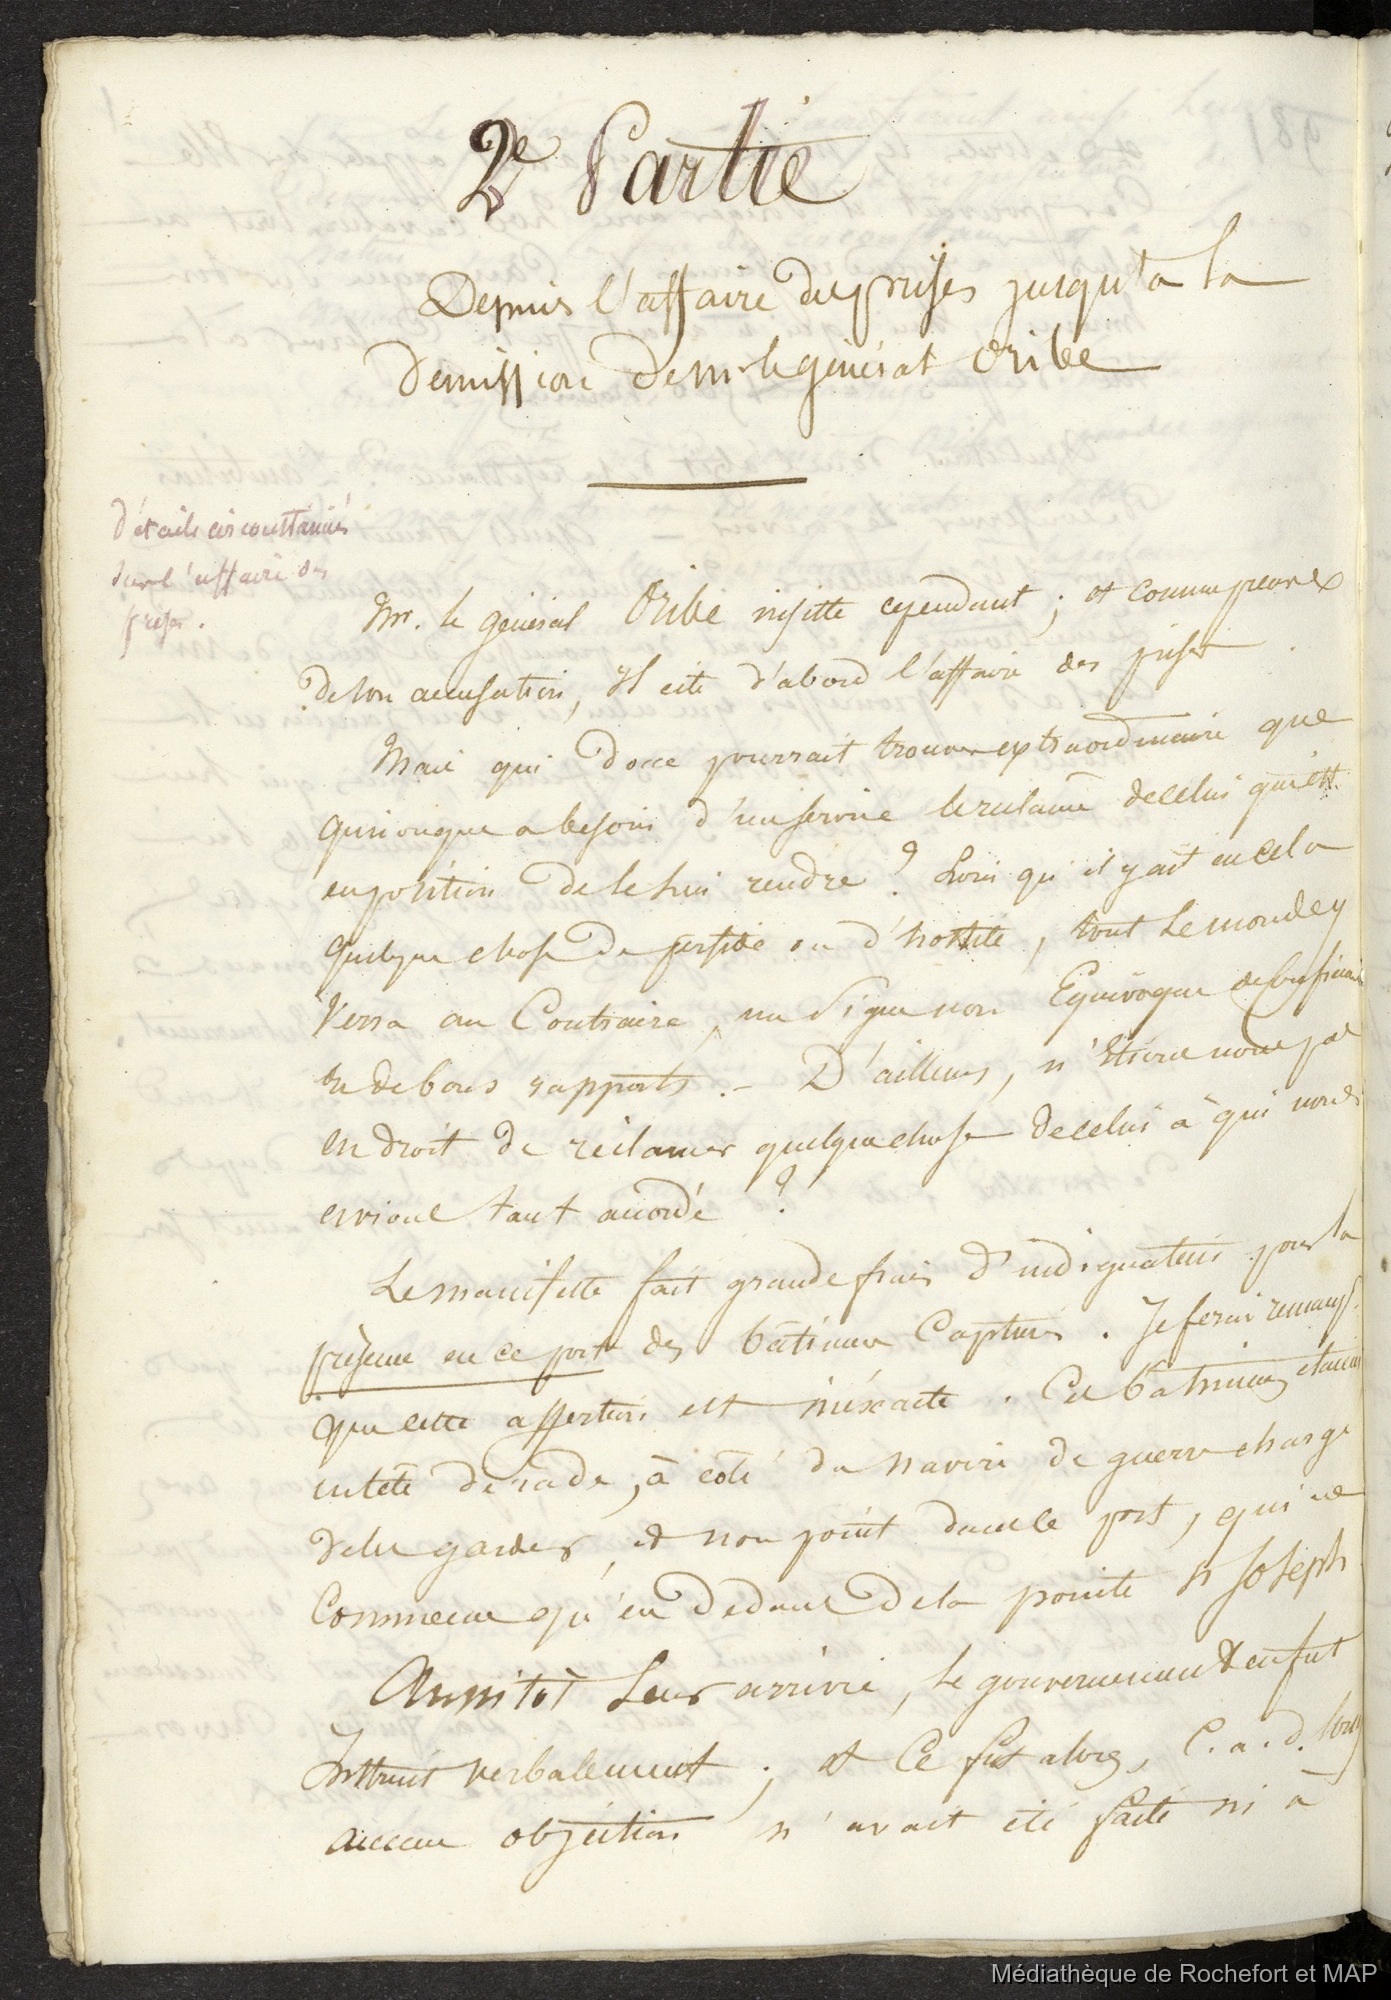 2e Partie
Depuis l'affaire des prises jusqu'à la
démission de Mr le général Oribe
Détails circonstanciés
sur l'affaire des
prises.
Mr. le général Oribe insiste cependant ; et comme preuve
de son accusation, il cite d'abord l'affaire des prises.
Mais qui donc pourrait trouver extraordinaire que
quiconque a besoin d'un service le réclame de celui qui est
en position de le lui rendre ? Loin qu'il y ait en cela
quelque chose de perfide ou d'hostile, tout le monde y
verra au Contraire, un signe non Equivoque de
et de bons rapports. – D'ailleurs, n'étions nous pas
en droit de réclamer quelque chose de celui à qui nous
avions tant accordé ?
Le manifeste fait grands frais d'indignation pour la
présence en ce port des bâtiments Capturés. Je ferai remarqr.
que cette assertion est inéxacte. Ces bâtiments étaient
en tête de rade, à côté du navire de guerre chargé
de les garder, et non point dans le port, qui ne
Commence qu'en dedans de la pointe St Joseph
Aussitôt leur arrivée, le gouvernement en fut
Instruit verbalement ; et Ce fut alors, C.a.d. lorsq
aucune objection n'avait été faite ni à
Médiathèque de Rochefort et MAP